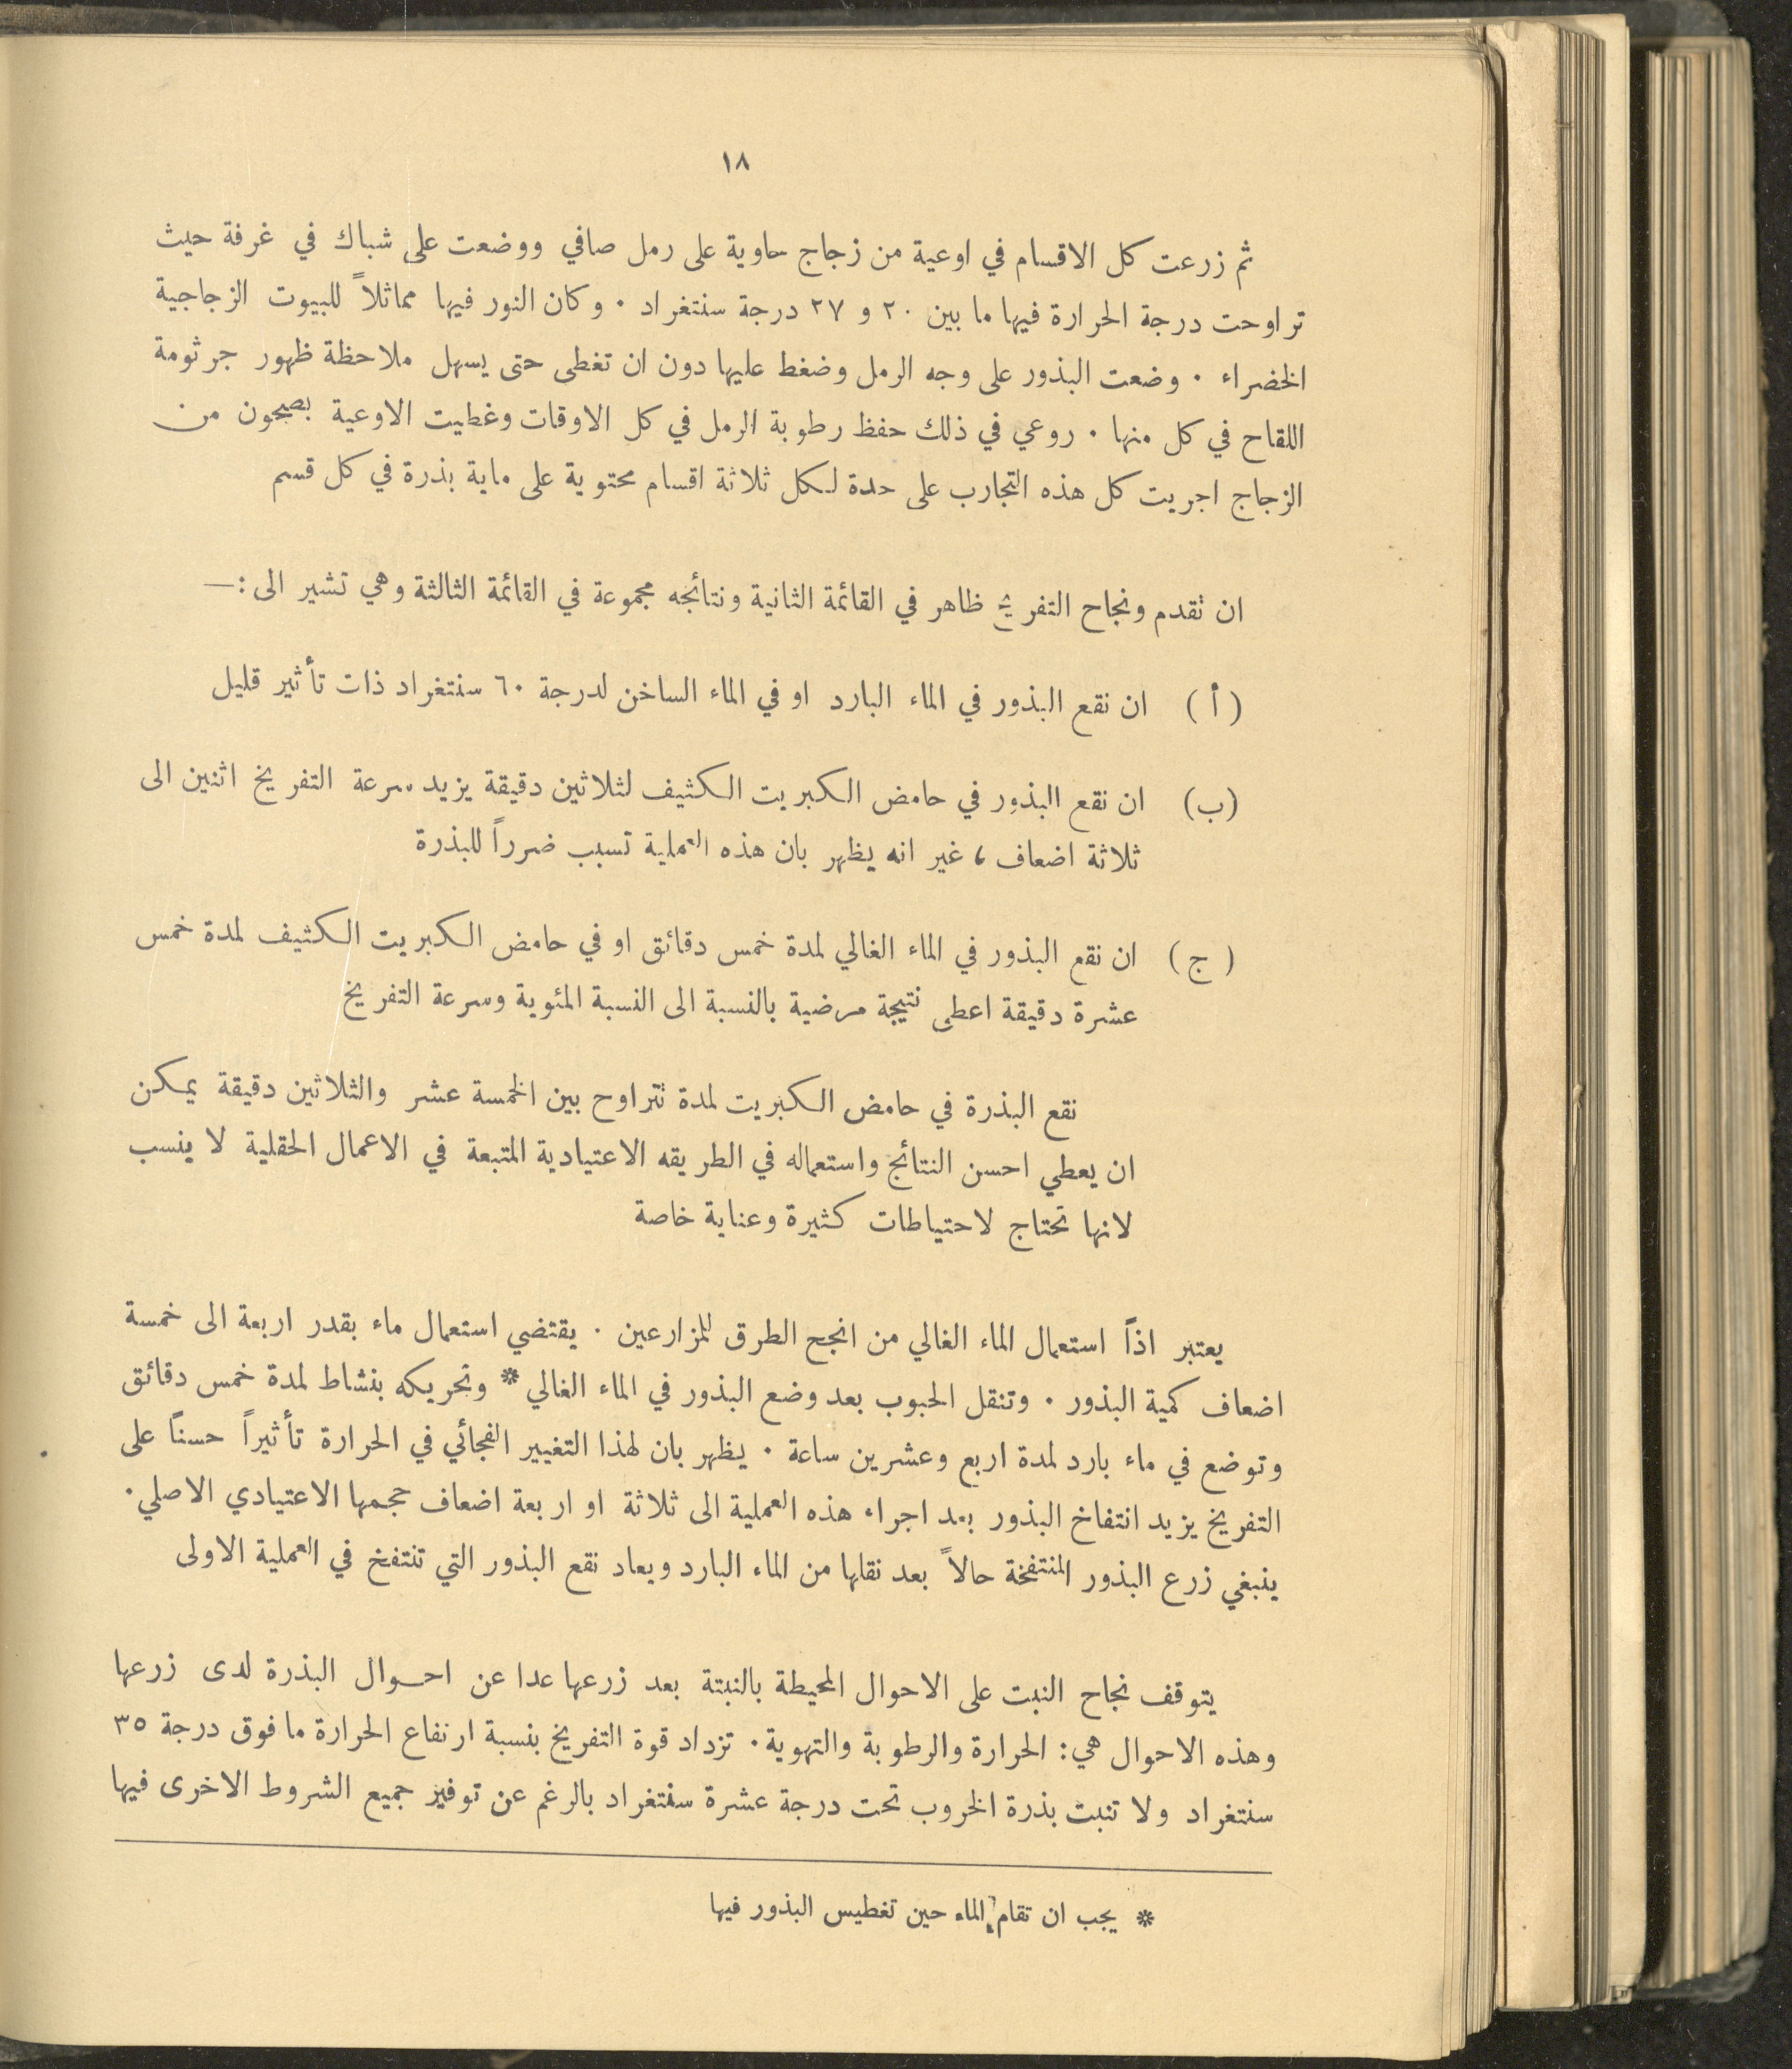 ١٨
ثم زرعت كل الاقسام في اوعية من زجاج حاوية على رمل صافي ووضعت على شباك في غرفة حيث
تراوحت درجة الحرارة فيها ما بين ٢٠ و ٢٧ درجة سنتغراد ٠ وكان النور فيها مماثلاً للبيوت الزجاجية
الخضراء ٠ وضعت البذور على وجه الرمل وضغط عليها دون ان تغطى حتى يسهل ملاحظة ظهور جرثومة
اللقاح في كل منها ٠ روعي في ذلك حفظ رطوبة الرمل في كل الاوقات وغطيت الاوعية بصحون من
الزجاج اجريت كل هذه التجارب على حدة لكل ثلاثة اقسام محتوية على ماية بذرة في كل قسم
ان تقدم ونجاح التفريخ ظاهر في القائمة الثانية ونتائجه مجموعة في القائمة الثالثة وهي تشير الى :—
( أ ) ان نقع البذور في الماء البارد او في الماء الساخن لدرجة ٦٠ سنتغراد ذات تأثير قليل
(ب) ان نقع البذور في حامض الكبريت الكثيف لثلاثين دقيقة يزيد سرعة التفريخ اثنين الى
ثلاثة اضعاف ، غير انه يظهر بان هذه العملية تسبب ضرراً للبذرة
( ج ) ان نقع البذور في الماء الغالي لمدة خمس دقائق او في حامض الكبريت الكثيف لمدة خمس
عشرة دقيقة اعطى نتيجة مرضية بالنسبة الى النسبة المئوية وسرعة التفريخ
نقع البذرة في حامض الكبريت لمدة تتراوح بين الخمسة عشر والثلاثين دقيقة يمكن
ان يعطي احسن النتائج واستعماله في الطريقه الاعتيادية المتبعة في الاعمال الحقلية لا ينسب
لانها تحتاج لاحتياطات كثيرة وعناية خاصة
يعتبر اذاً استعمال الماء الغالي من انجح الطرق للمزارعين ٠ يقتضي استعمال ماء بقدر اربعة الى خمسة
اضعاف كمية البذور ٠ وتنقل الحبوب بعد وضع البذور في الماء الغالي * وتحريكه بنشاط لمدة خمس دقائق
وتوضع في ماء بارد لمدة اربع وعشرين ساعة ٠ يظهر بان لهذا التغيير الفجائي في الحرارة تأثيراً حسناً على
التفريخ يزيد انتفاخ البذور بعد اجراء هذه العملية الى ثلاثة او اربعة اضعاف حجمها الاعتيادي الاصلي ٠
ينبغي زرع البذور المنتفخة حالاً بعد نقلها من الماء البارد ويعاد نقع البذور التي تنتفخ في العملية الاولى
يتوقف نجاح النبت على الاحوال المحيطة بالنبتة بعد زرعها عدا عن احوال البذرة لدى زرعها
وهذه الاحوال هي : الحرارة والرطوبة والتهوية ٠ تزداد قوة التفريخ بنسبة ارتفاع الحرارة ما فوق درجة ٣٥
سنتغراد ولا تنبت بذرة الخروب تحت درجة عشرة سنتغراد بالرغم عن توفير جميع الشروط الاخرى فيها
* يجب ان تقام الماء حين تغطيس البذور فيها